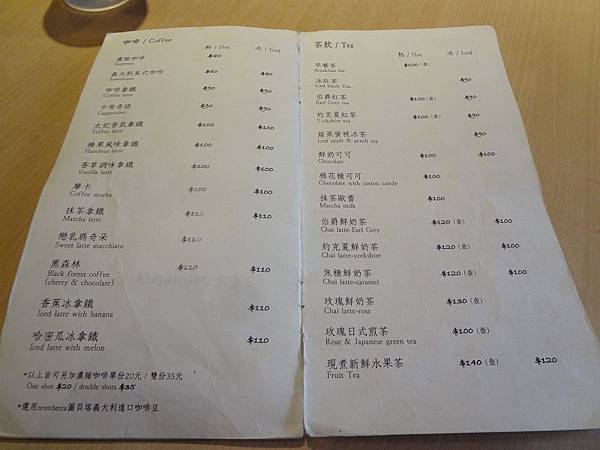 咖啡 / Coffee 熱 / Hot 冰 / Iced
濃縮咖啡 $80
Espresso
義大利美式咖啡 $80 $80
Americano
咖啡拿鐵 $90 $90
Coffee latte
卡布奇諾 $90 $90
Cappuccino
太妃香氛拿鐵 $100 $100
Toffee latte
榛果風味拿鐵 $100 $100
Hazelnut latte
香草調味拿鐵 $100 $100
Vanilla latte
摩卡 $100 $100
Coffee mocha
抹茶拿鐵 $110 $110
Matcha latte
戀乳瑪奇朵 $110 $110
Sweet latte macchiato
黑森林 $110 $110
Black forest coffee
(cherry & chocolate)
香蕉冰拿鐵 $110
Iced latte with banana
哈密瓜冰拿鐵 $110
Iced latte with melon
*以上皆可另加濃縮咖啡單份20元 / 雙份35元
One shot $20 / double shots $35
*選用trombetta圖貝塔義大利進口咖啡豆
茶飲 / Tea 熱 / Hot 冰 / Iced
早餐茶 $100 (壺)
Breakfast tea
冰紅茶 $90
Iced black Tea
伯爵紅茶 $100 (壺) $90
Earl Grey tea
約克夏紅茶 $100 (壺) $90
Yorkshire tea
蘋果蜜桃冰茶 $90
Iced apple & peach tea
鮮奶可可 $100 $100
Chocolate
棉花糖可可 $100 $100
Chocolate with cotton candy
抹茶歐蕾 $100
Matcha milk
伯爵鮮奶茶 $120 (壺) $100
Chai latte-Earl Grey
約克夏鮮奶茶 $120 (壺) $100
Chai latte-yorkshire
焦糖鮮奶茶 $120 (壺) $100
Chai latte-caramel
玫瑰鮮奶茶 $130 (壺)
Chai latte-rose
玫瑰日式煎茶 $100 (壺)
Rose & Japanese green tea
現煮新鮮水果茶 $140 (壺) $120
Fruit Tea